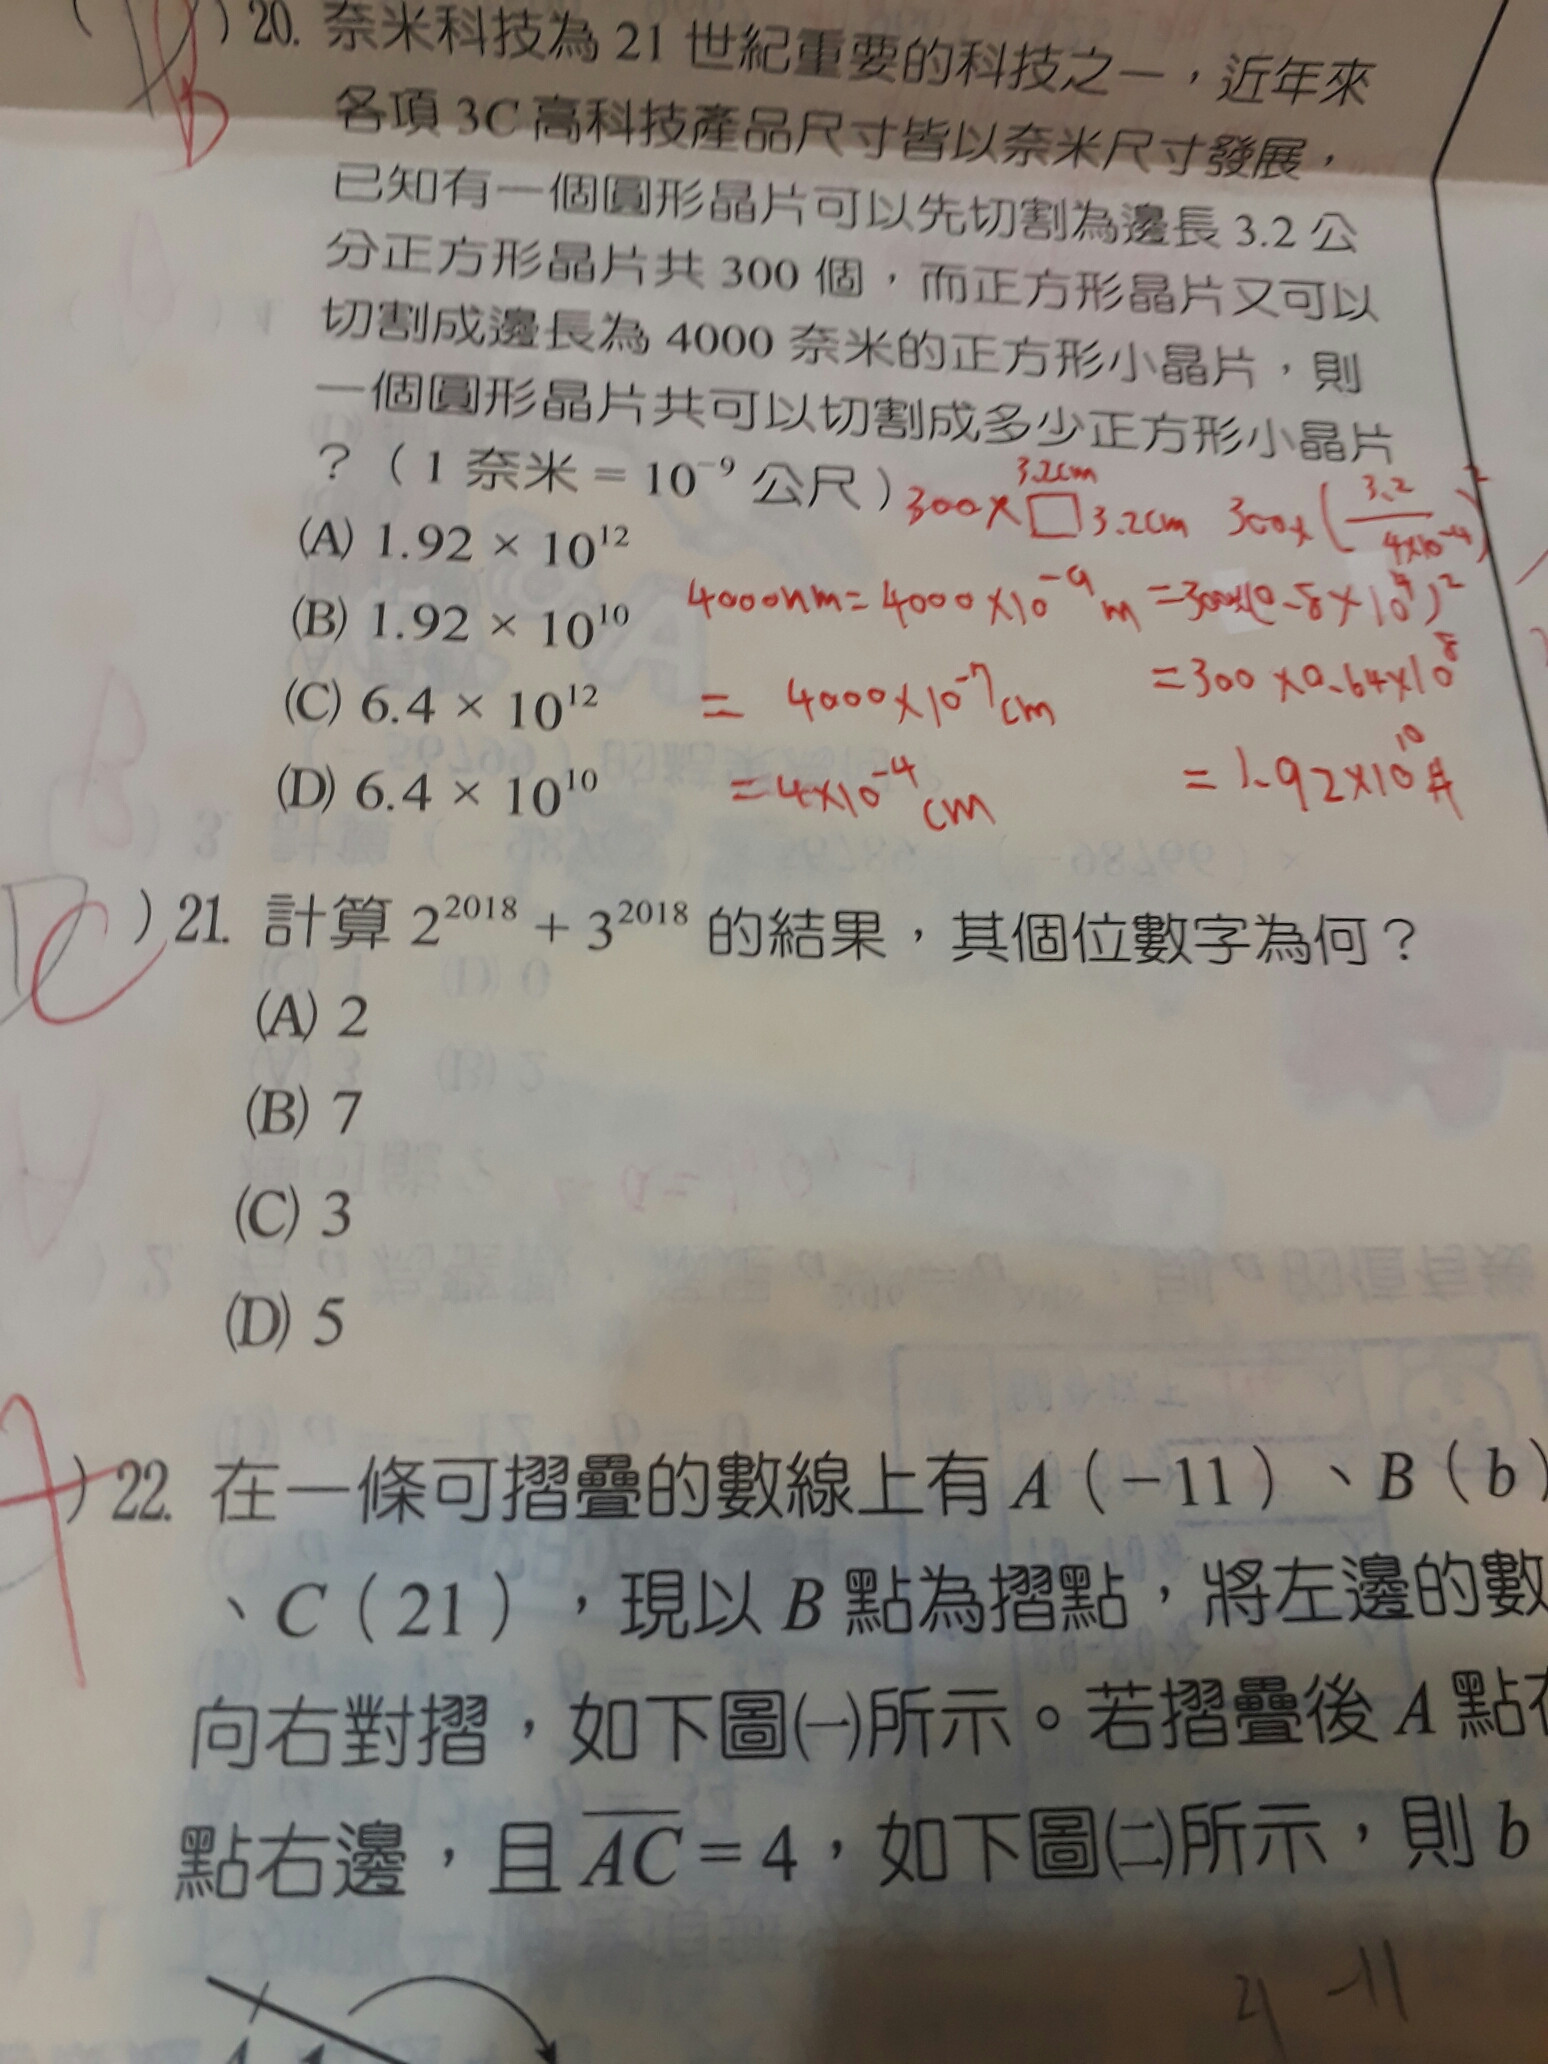 ) 20. 奈米科技為 21 世紀重要的科技之一，近年來
B
各項 3C 高科技產品尺寸皆以奈米尺寸發展，
已知有一個圓形晶片可以先切割為邊長 3.2 公
分正方形晶片共 300 個，而正方形晶片又可以
切割成邊長為 4000 奈米的正方形小晶片，則
一個圓形晶片共可以切割成多少正方形小晶片
？（1 奈米 = 10⁻⁹ 公尺）
3.2cm
300×□3.2cm 300×(3.2/4×10⁻⁴)²
(A) 1.92 × 10¹²
4000nm = 4000×10⁻⁹ m = 300×(0.8×10⁴)²
(B) 1.92 × 10¹⁰
= 4000×10⁻⁷cm = 300×0.64×10⁸
(C) 6.4 × 10¹²
= 4×10⁻⁴cm = 1.92×10¹⁰
(D) 6.4 × 10¹⁰
D C ) 21. 計算 2²⁰¹⁸ + 3²⁰¹⁸ 的結果，其個位數字為何？
(A) 2
(B) 7
(C) 3
(D) 5
) 22. 在一條可摺疊的數線上有 A（−11）、B（b）
、C（21），現以 B 點為摺點，將左邊的數
向右對摺，如下圖㈠所示。若摺疊後 A 點在
點右邊，且 A̅C̅ = 4，如下圖㈡所示，則 b
21 -11